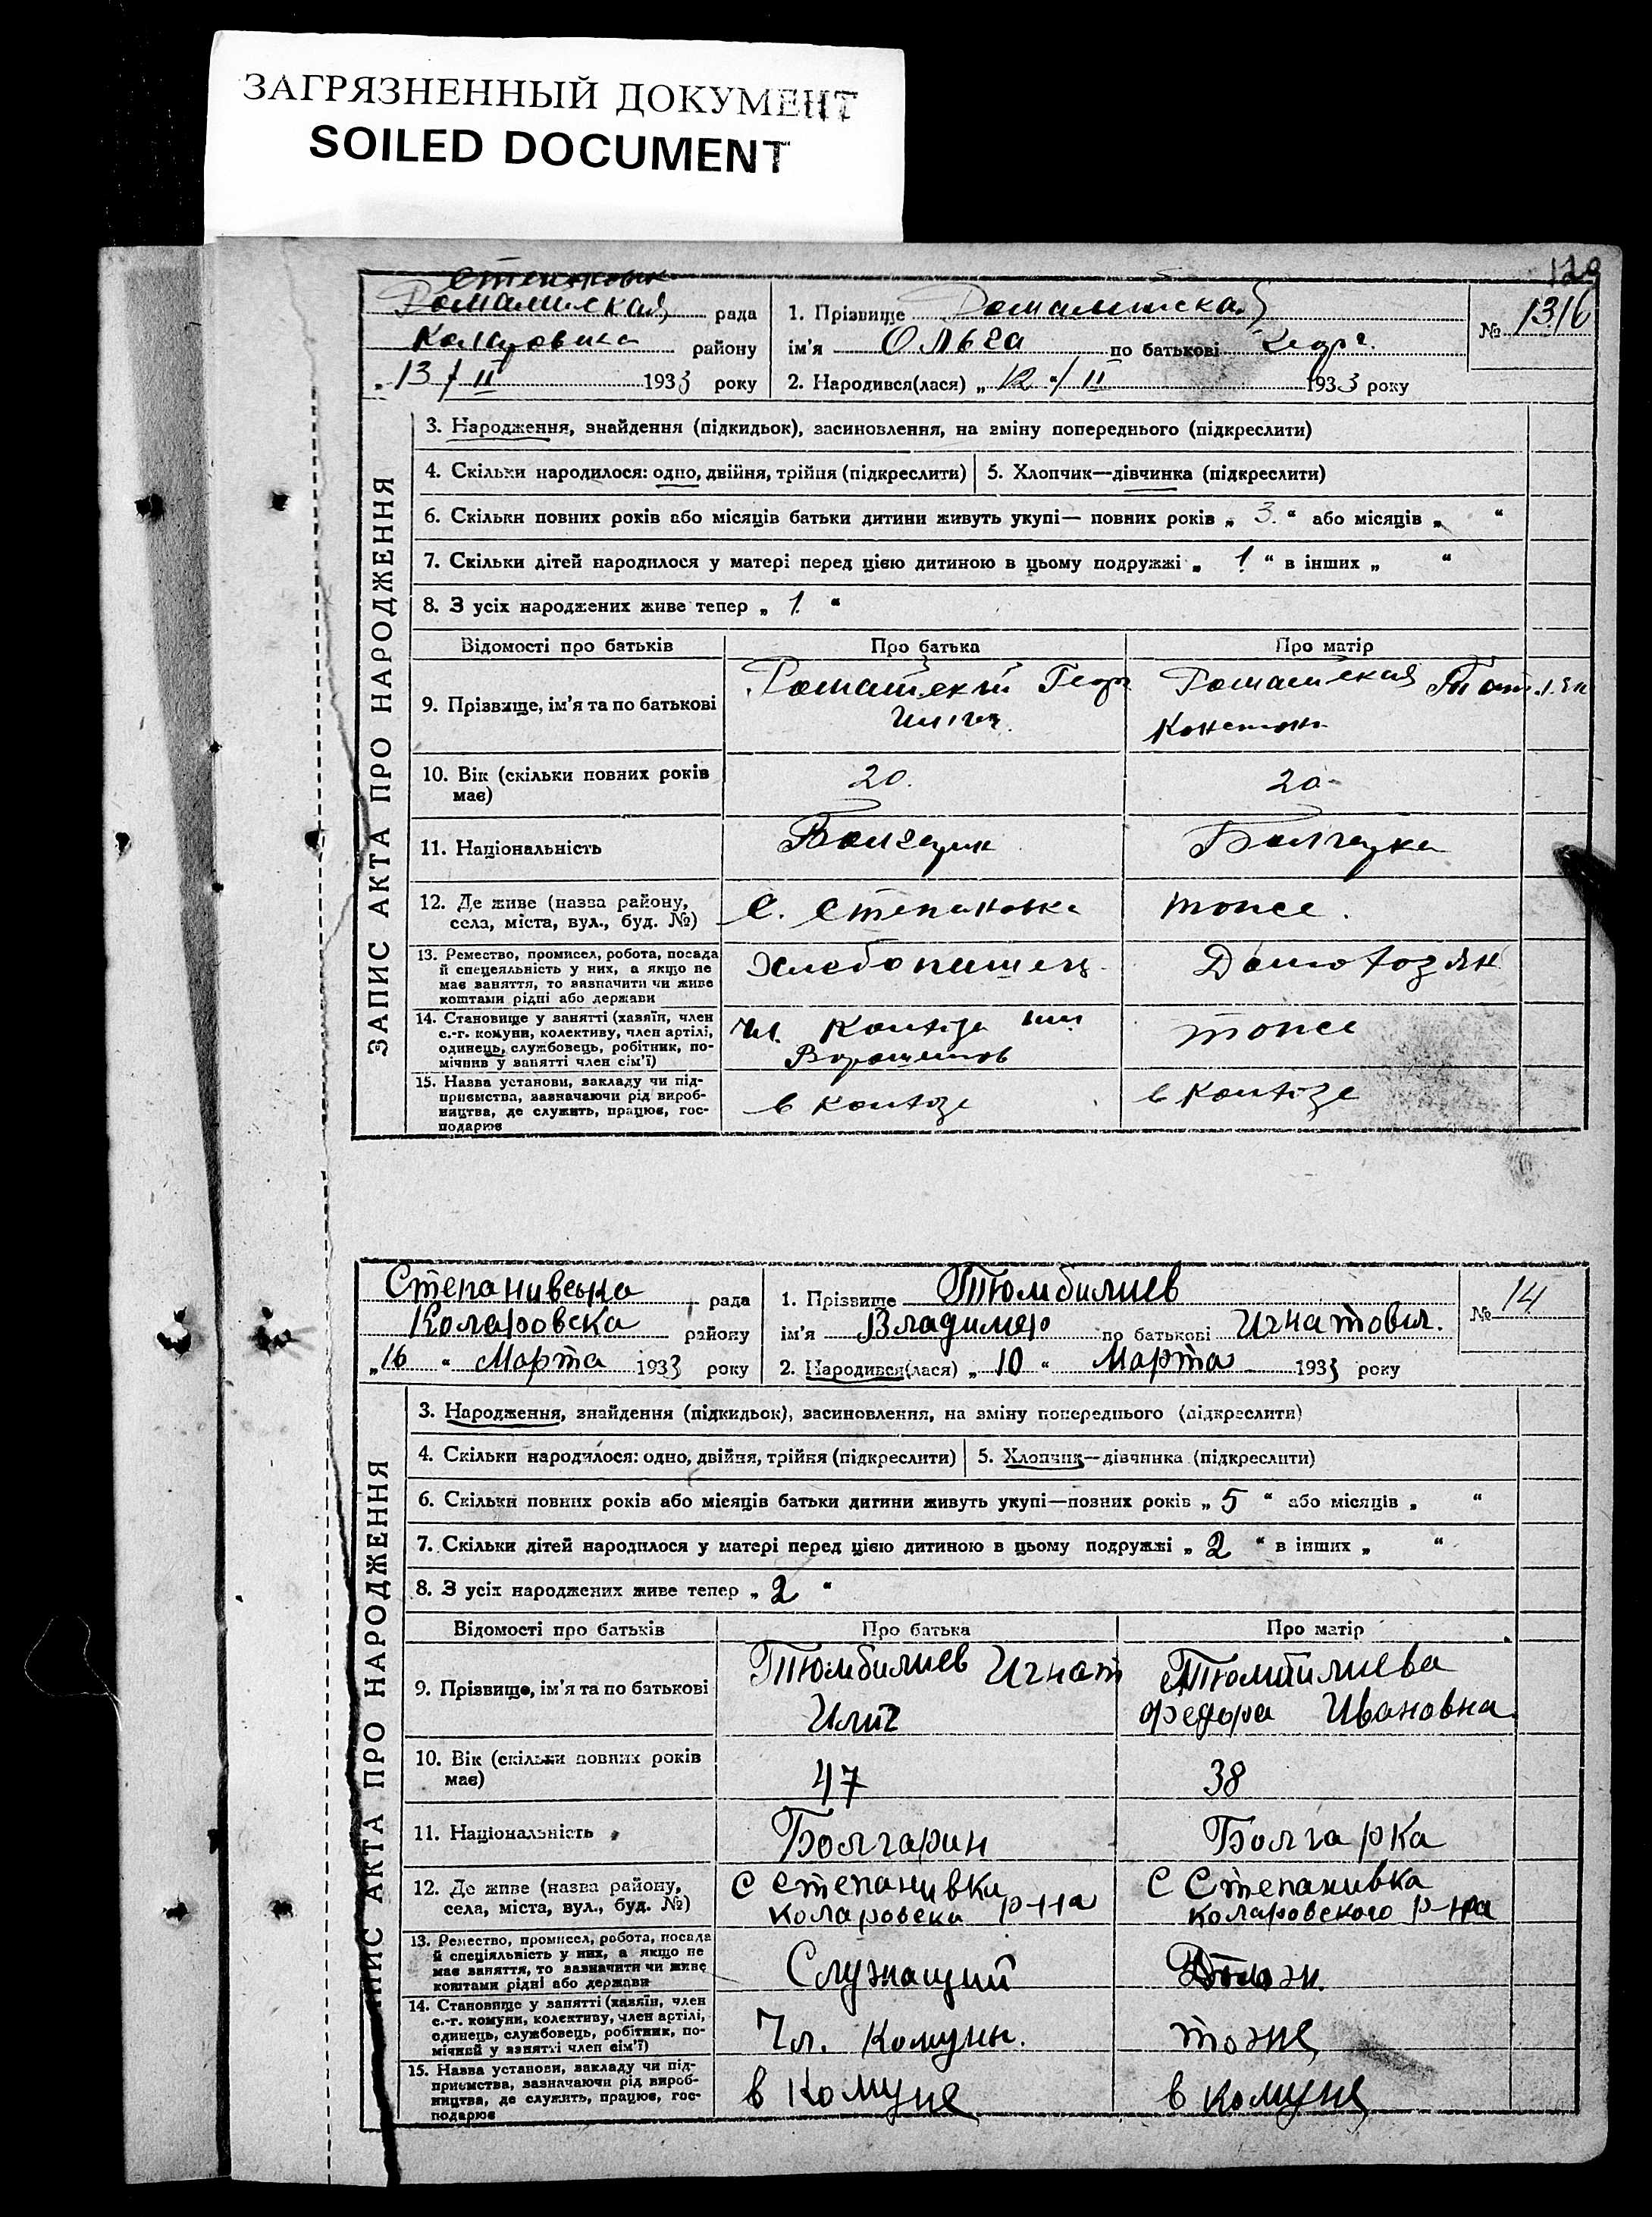 ЗАГРЯЗНЕННЫЙ ДОКУМЕНТ
SOILED DOCUMENT
129
рада
району
13/II 1933 року
1. Прізвище
ім'я Ольга по батькові Георг.
2. Народився(лася) „12“/II 1933 року
№ 13
ЗАПИС АКТА ПРО НАРОДЖЕННЯ
3. Народження, знайдення (підкидьок), засиновлення, на зміну попереднього (підкреслити)
4. Скільки народилося: одно, двійня, трійня (підкреслити) 5. Хлопчик—дівчинка (підкреслити)
6. Скільки повних років або місяців батьки дитини живуть укупі— повних років „ 3 “ або місяців „ “
7. Скільки дітей народилося у матері перед цією дитиною в цьому подружжі „ 1 “ в інших „ “
8. З усіх народжених живе тепер „ 1 “
Відомості про батьків Про батька Про матір
9. Прізвище, ім'я та по батькові Георг
10. Вік (скільки повних років 20. 20
має)
11. Національність Болгарин Болгарка
12. Де живе (назва району, С. Степановка тоже.
села, міста, вул., буд. №)
13. Ремество, промисел, робота, посада Хлебопашец Домохозяк
й спецеяльність у них, а якщо не
має заняття, то зазначити чи живе
коштами рідні або держави
14. Становище у занятті (хазяїн, член Чл. Колхоза им тоже
с.-г. комуни, колективу, член артілі, Ворошилов
одинець, службовець, робітник, по-
мічник у занятті член сім'ї)
15. Назва установи, закладу чи під- в колхозе в колхозе
приємства, зазначаючи рід вироб-
ництва, де служить, працює, гос-
подарює
Степанивська рада
Коларовска району
„16“ Марта 1933 року
1. Прізвище Тюмбилиев
ім'я Владимер по батькові Игнатович.
2. Народився(лася) „10“ Марта 1933 року
№ 14
ЗАПИС АКТА ПРО НАРОДЖЕННЯ
3. Народження, знайдення (підкидьок), засиновлення, на зміну попереднього (підкреслити)
4. Скільки народилося: одно, двійня, трійня (підкреслити) 5. Хлопчик—дівчинка (підкреслити)
6. Скільки повних років або місяців батьки дитини живуть укупі—повних років „ 5 “ або місяців „ “
7. Скільки дітей народилося у матері перед цією дитиною в цьому подружжі „ 2 “ в інших „ “
8. З усіх народжених живе тепер „ 2 “
Відомості про батьків Про батька Про матір
9. Прізвище, ім'я та по батькові Тюмбилиев Игнат Тюмбилиева
Илич Федора Ивановна
10. Вік (скільки повних років 47 38
має)
11. Національність Болгарин Болгарка
12. Де живе (назва району, С Степанивка С Степанивка
села, міста, вул., буд. №) Коларовска р-на Коларовского р-на
13. Ремество, промисел, робота, посада Служащий
й спеціяльність у них, а якщо не
має заняття, то зазначити чи живе
коштами рідні або держави
14. Становище у занятті (хазяїн, член Чл. Комуны. тоже
с.-г. комуни, колективу, член артілі,
одинець, службовець, робітник, по-
мічний у занятті член сім'ї)
15. Назва установи, закладу чи під- в Комуне в комуне
приємства, зазначаючи рід вироб-
ництва, де служить, працює, гос-
подарює